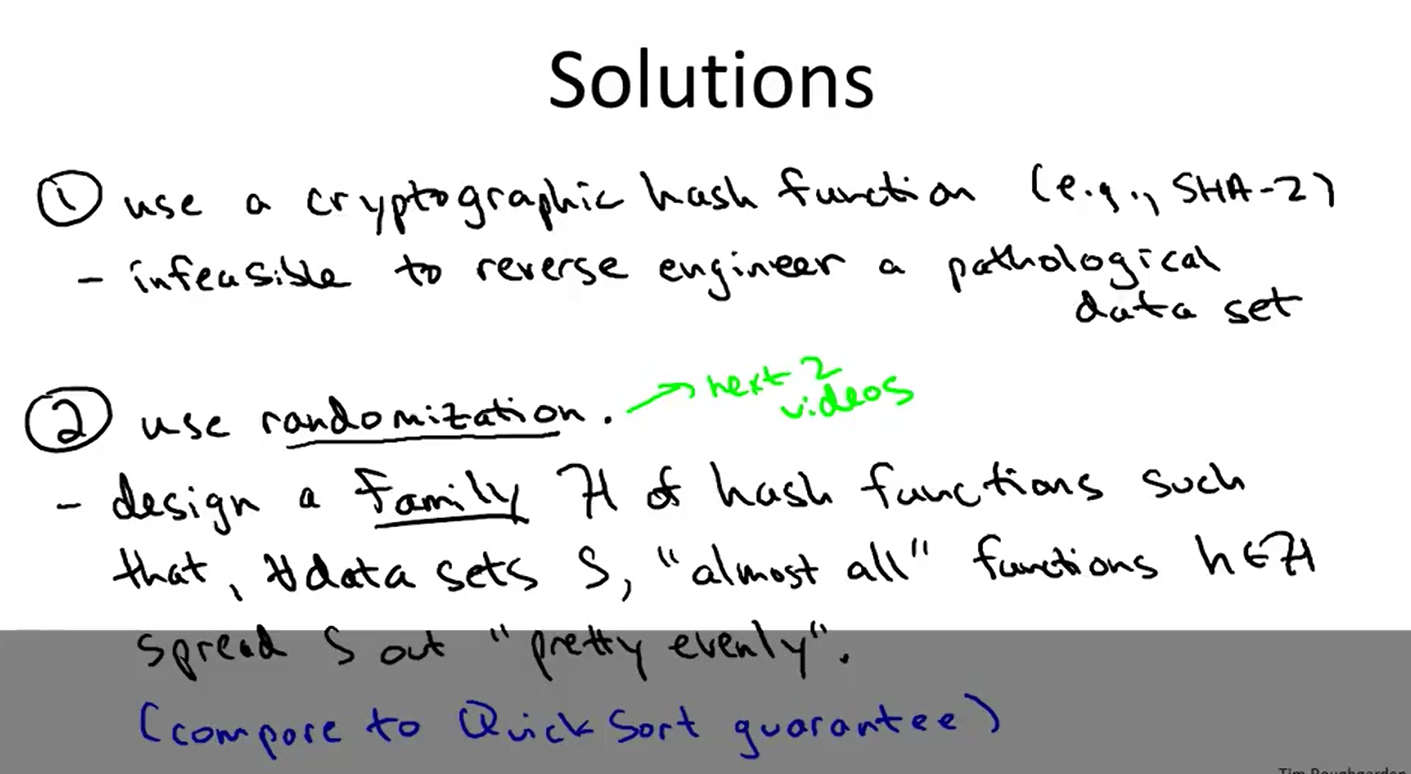 Solutions
① use a cryptographic hash function (e.g., SHA-2)
- infeasible to reverse engineer a pathological
data set
② use randomization. → next 2
videos
- design a family H of hash functions such
that, ∀ data sets S, "almost all" functions h∈H
spread S out "pretty evenly".
(compare to QuickSort guarantee)
Tim Roughgarden